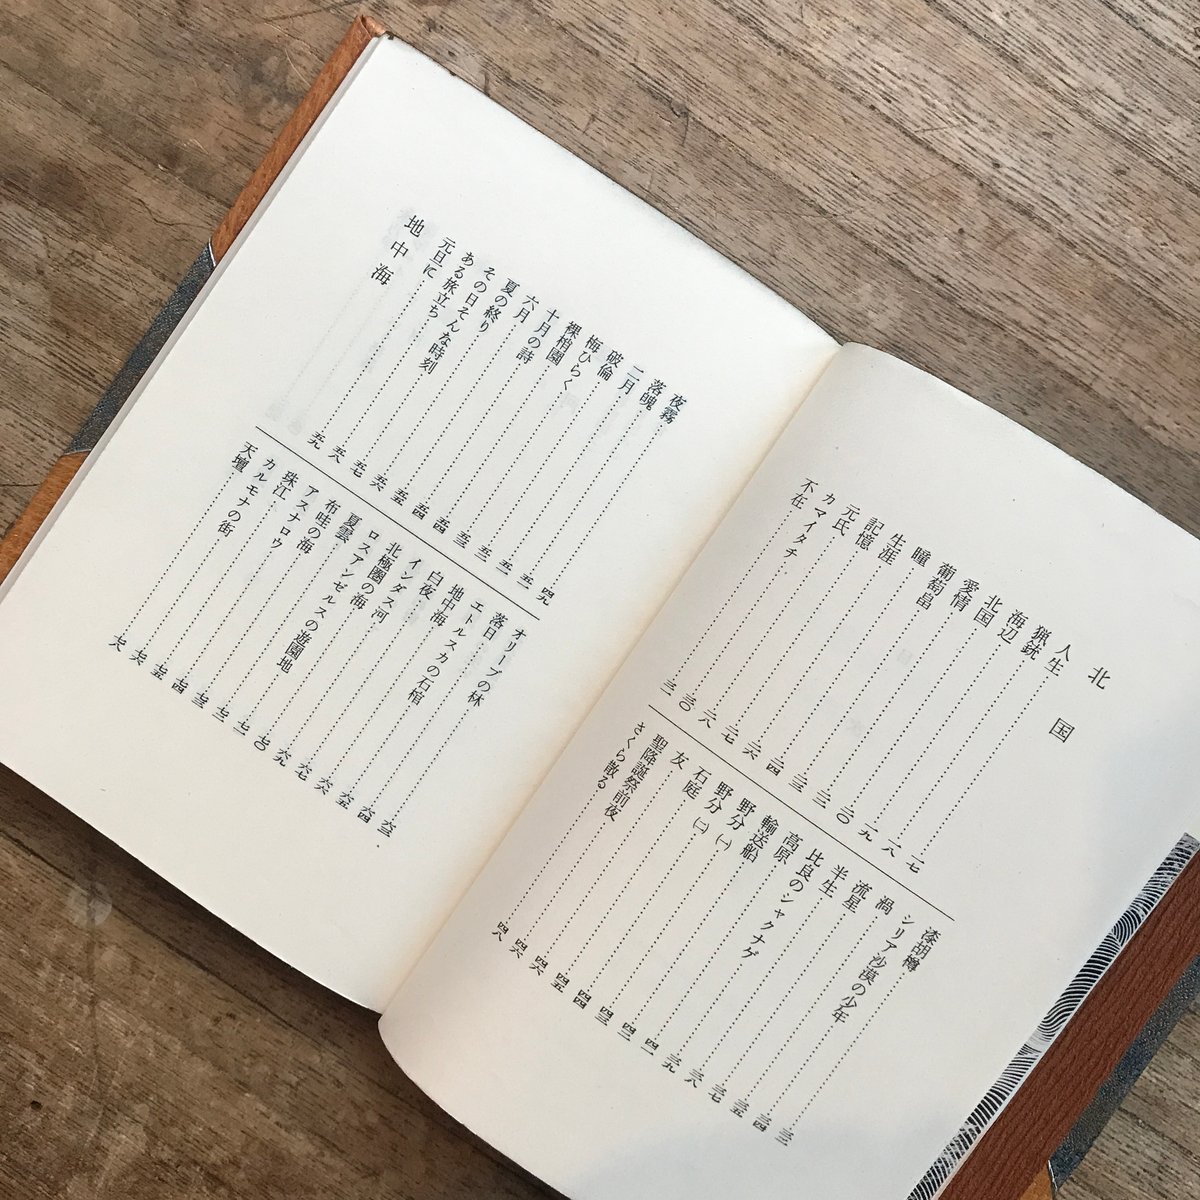 北国
人生 一七
猟銃 一八
海辺 一九
北国 二〇
愛情 二二
葡萄畠 二三
瞳 二四
生涯 二六
記憶 二七
元氏 二八
カマイタチ 三〇
不在 三一
漆胡樽 三二
シリア沙漠の少年 三四
渦 三五
流星 三七
半生 三八
比良のシャクナゲ 三九
高原 四一
輸送船 四二
野分(一) 四三
野分(二) 四四
石庭 四五
友 四六
聖降誕祭前夜 四六
さくら散る 四八
夜霧 四九
落魄 五一
二月 五一
破倫 五二
梅ひらく 五三
裸梢園 五四
十月の詩 五四
六月 五五
夏の終り 五六
その日そんな時刻 五七
ある旅立ち 五八
元旦に 五九
地中海
オリーブの林 六三
落日 六四
エトルスカの石棺 六五
地中海 六六
白夜 六七
インダス河 六九
北極圏の海 七〇
ロスアンゼルスの遊園地 七一
夏雲 七二
布哇の海 七三
アスナロウ 七四
珠江 七五
カルモナの街 七六
天壇 七八